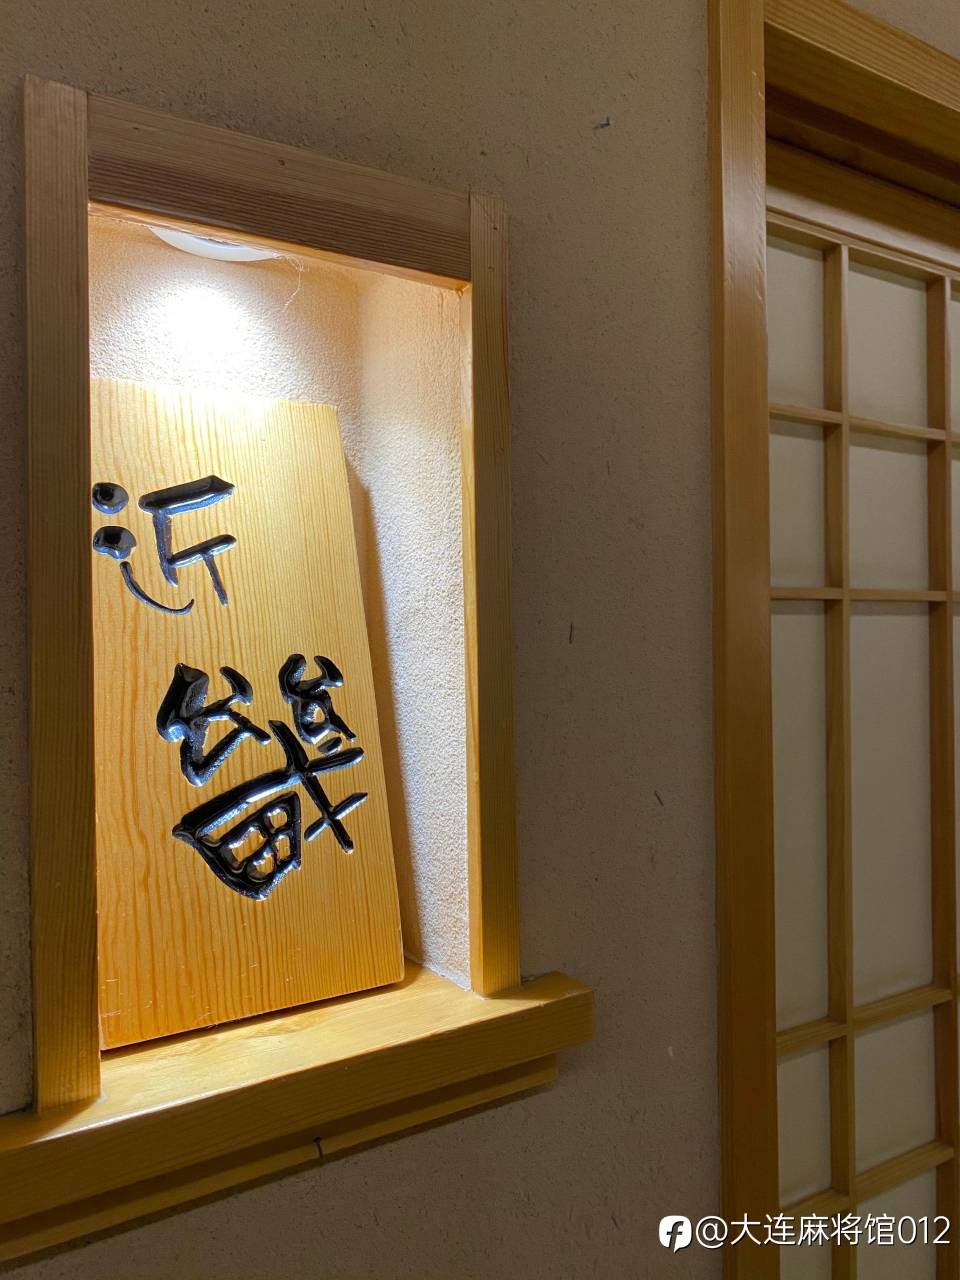 近
畿
@大连麻将馆012